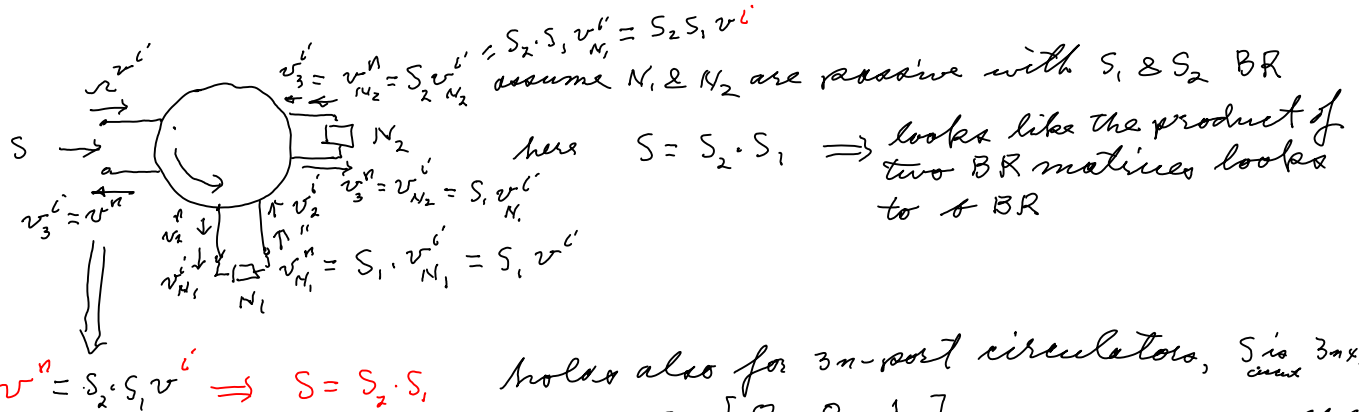 v^i
v_3^i = v_{N_2}^r = S_2 v_{N_2}^i = S_2 · S_1 v_{N_1}^i = S_2 S_1 v^i
assume N_1 & N_2 are passive with S_1 & S_2 BR
S → N_2
here S = S_2 · S_1 ⇒ looks like the product of
two BR matrices looks
to BR
v_3^r = v_{N_2}^i = S_1 v_{N_1}^i
v_3^i = v^r
v_2^r v_2^i
v_{N_1}^i N_1 v_{N_1}^r = S_1 · v_{N_1}^i = S_1 v^i
v^r = S_2 · S_1 v^i ⇒ S = S_2 · S_1
holds also for 3n-port circulators, S is 3n×
[0 0 1]